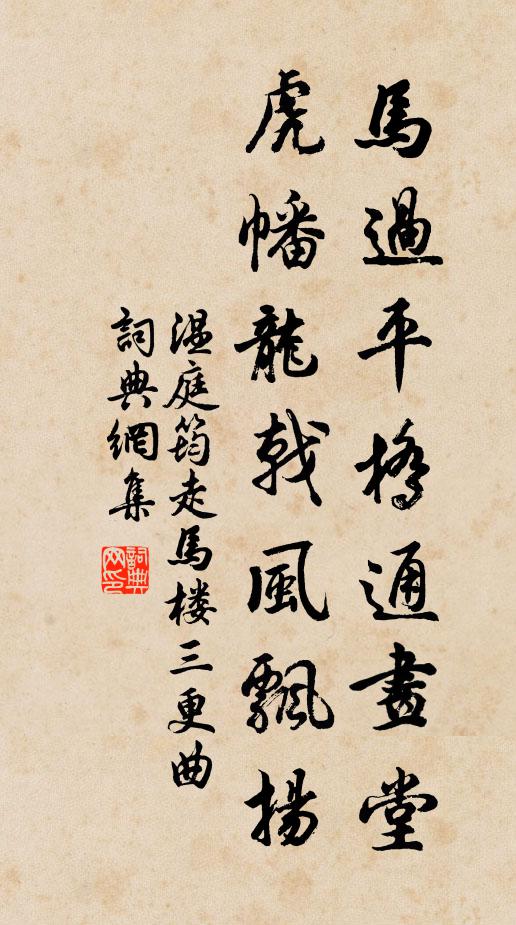 馬過平橋通畫堂
虎幡龍戟風飄揚
温庭筠走馬楼三更曲
詞典網集
詞典网印